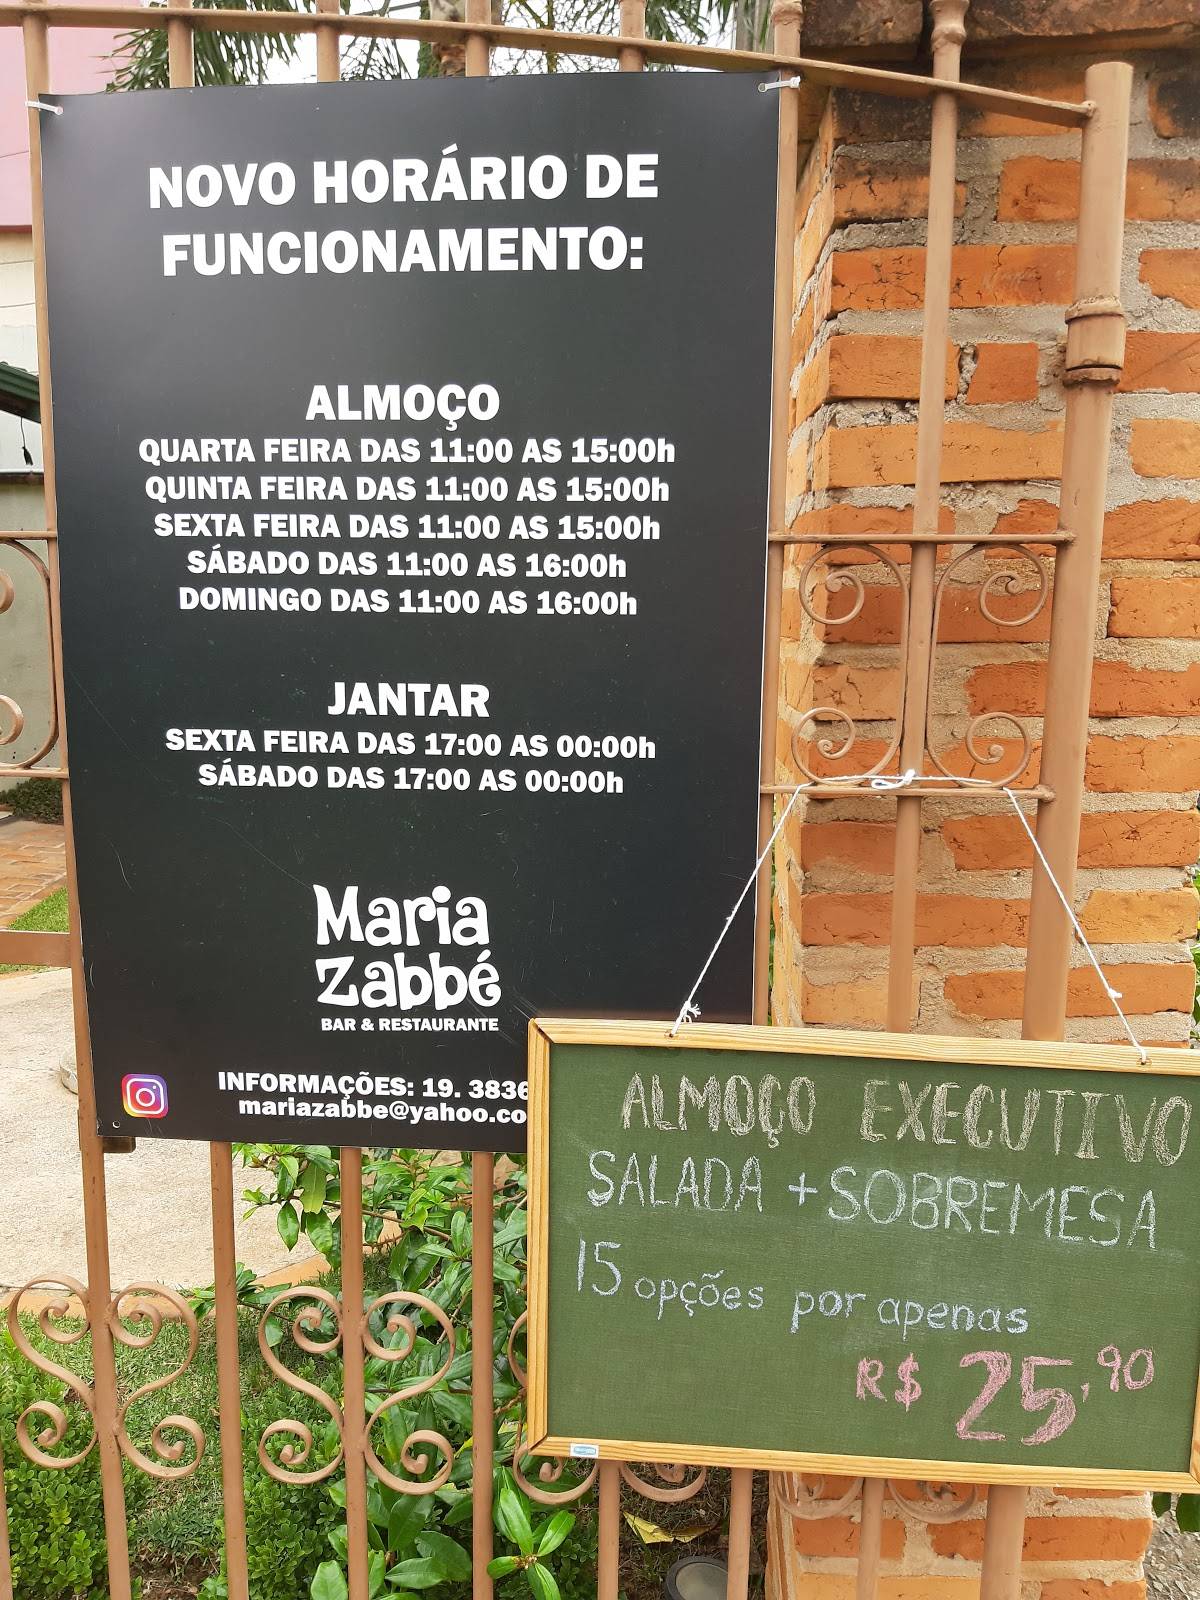 NOVO HORÁRIO DE
FUNCIONAMENTO:
ALMOÇO
QUARTA FEIRA DAS 11:00 AS 15:00h
QUINTA FEIRA DAS 11:00 AS 15:00h
SEXTA FEIRA DAS 11:00 AS 15:00h
SÁBADO DAS 11:00 AS 16:00h
DOMINGO DAS 11:00 AS 16:00h
JANTAR
SEXTA FEIRA DAS 17:00 AS 00:00h
SÁBADO DAS 17:00 AS 00:00h
Maria
Zabbé
BAR & RESTAURANTE
INFORMAÇÕES: 19. 3836
mariazabbe@yahoo.co
ALMOÇO EXECUTIVO
SALADA + SOBREMESA
15 opções por apenas
R$ 25,90